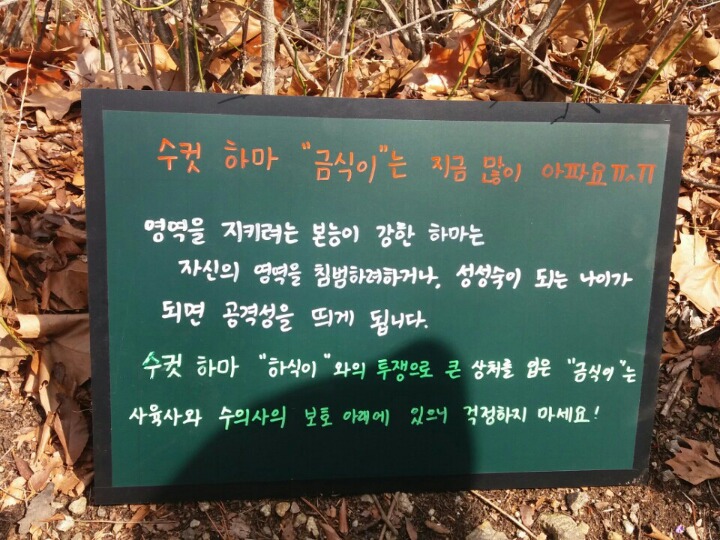 수컷 하마 "금식이"는 지금 많이 아파요ㅠ^ㅠ
영역을 지키려는 본능이 강한 하마는
자신의 영역을 침범하려하거나, 성성숙이 되는 나이가
되면 공격성을 띄게 됩니다.
수컷 하마 "하식이"와의 투쟁으로 큰 상처를 입은 "금식이"는
사육사와 수의사의 보호 아래에 있으니 걱정하지 마세요!